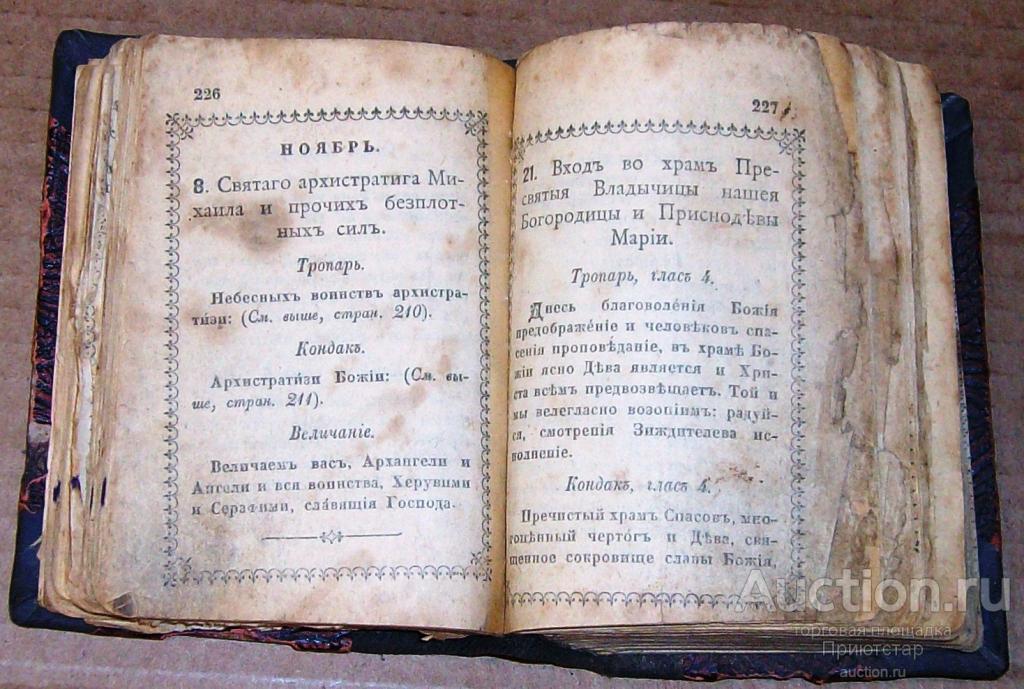 226
НОЯБРЬ.
8. Святаго архистратига Ми-
хаила и прочихъ безплот-
ныхъ силъ.
Тропарь.
Небесныхъ воинствъ архистра-
ти́зи: (См. выше, стран. 210).
Кондакъ.
Архистрати́зи Божіи: (См. вы-
ше, стран. 211).
Величаніе.
Величаемъ васъ, Архангели и
Ангели и вся воинства, Херувими
и Серафими, сла́вящія Господа.
227
21. Входъ во храмъ Пре-
святыя Владычицы нашея
Богородицы и Приснодѣвы
Маріи.
Тропарь, гласъ 4.
Днесь благоволе́нія Божія
предображе́ніе и человѣковъ спа-
сенія проповѣданіе, въ храмѣ Бо-
жіи ясно Дѣва является и Хри-
ста всѣмъ предвозвѣщаетъ. Той и
мы велегласно возопіимъ: радуй-
ся, смотрѐнія Зиждителева ис-
полненіе.
Кондакъ, гласъ 4.
Пречистый храмъ Спасовъ, мно-
гоцѣнный черто́гъ и Дѣва, свя-
щенное сокровище славы Божія,
Auction.ru
торговая площадка
Приютстар
auction.ru